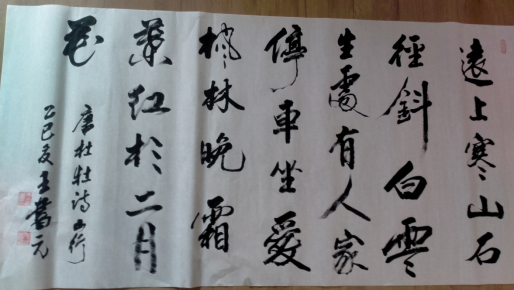 遠上寒山石
徑斜白雲
生處有人家
停車坐愛
楓林晚霜
葉紅於二月
花
唐杜牡诗山行
乙巳夏王嵩元